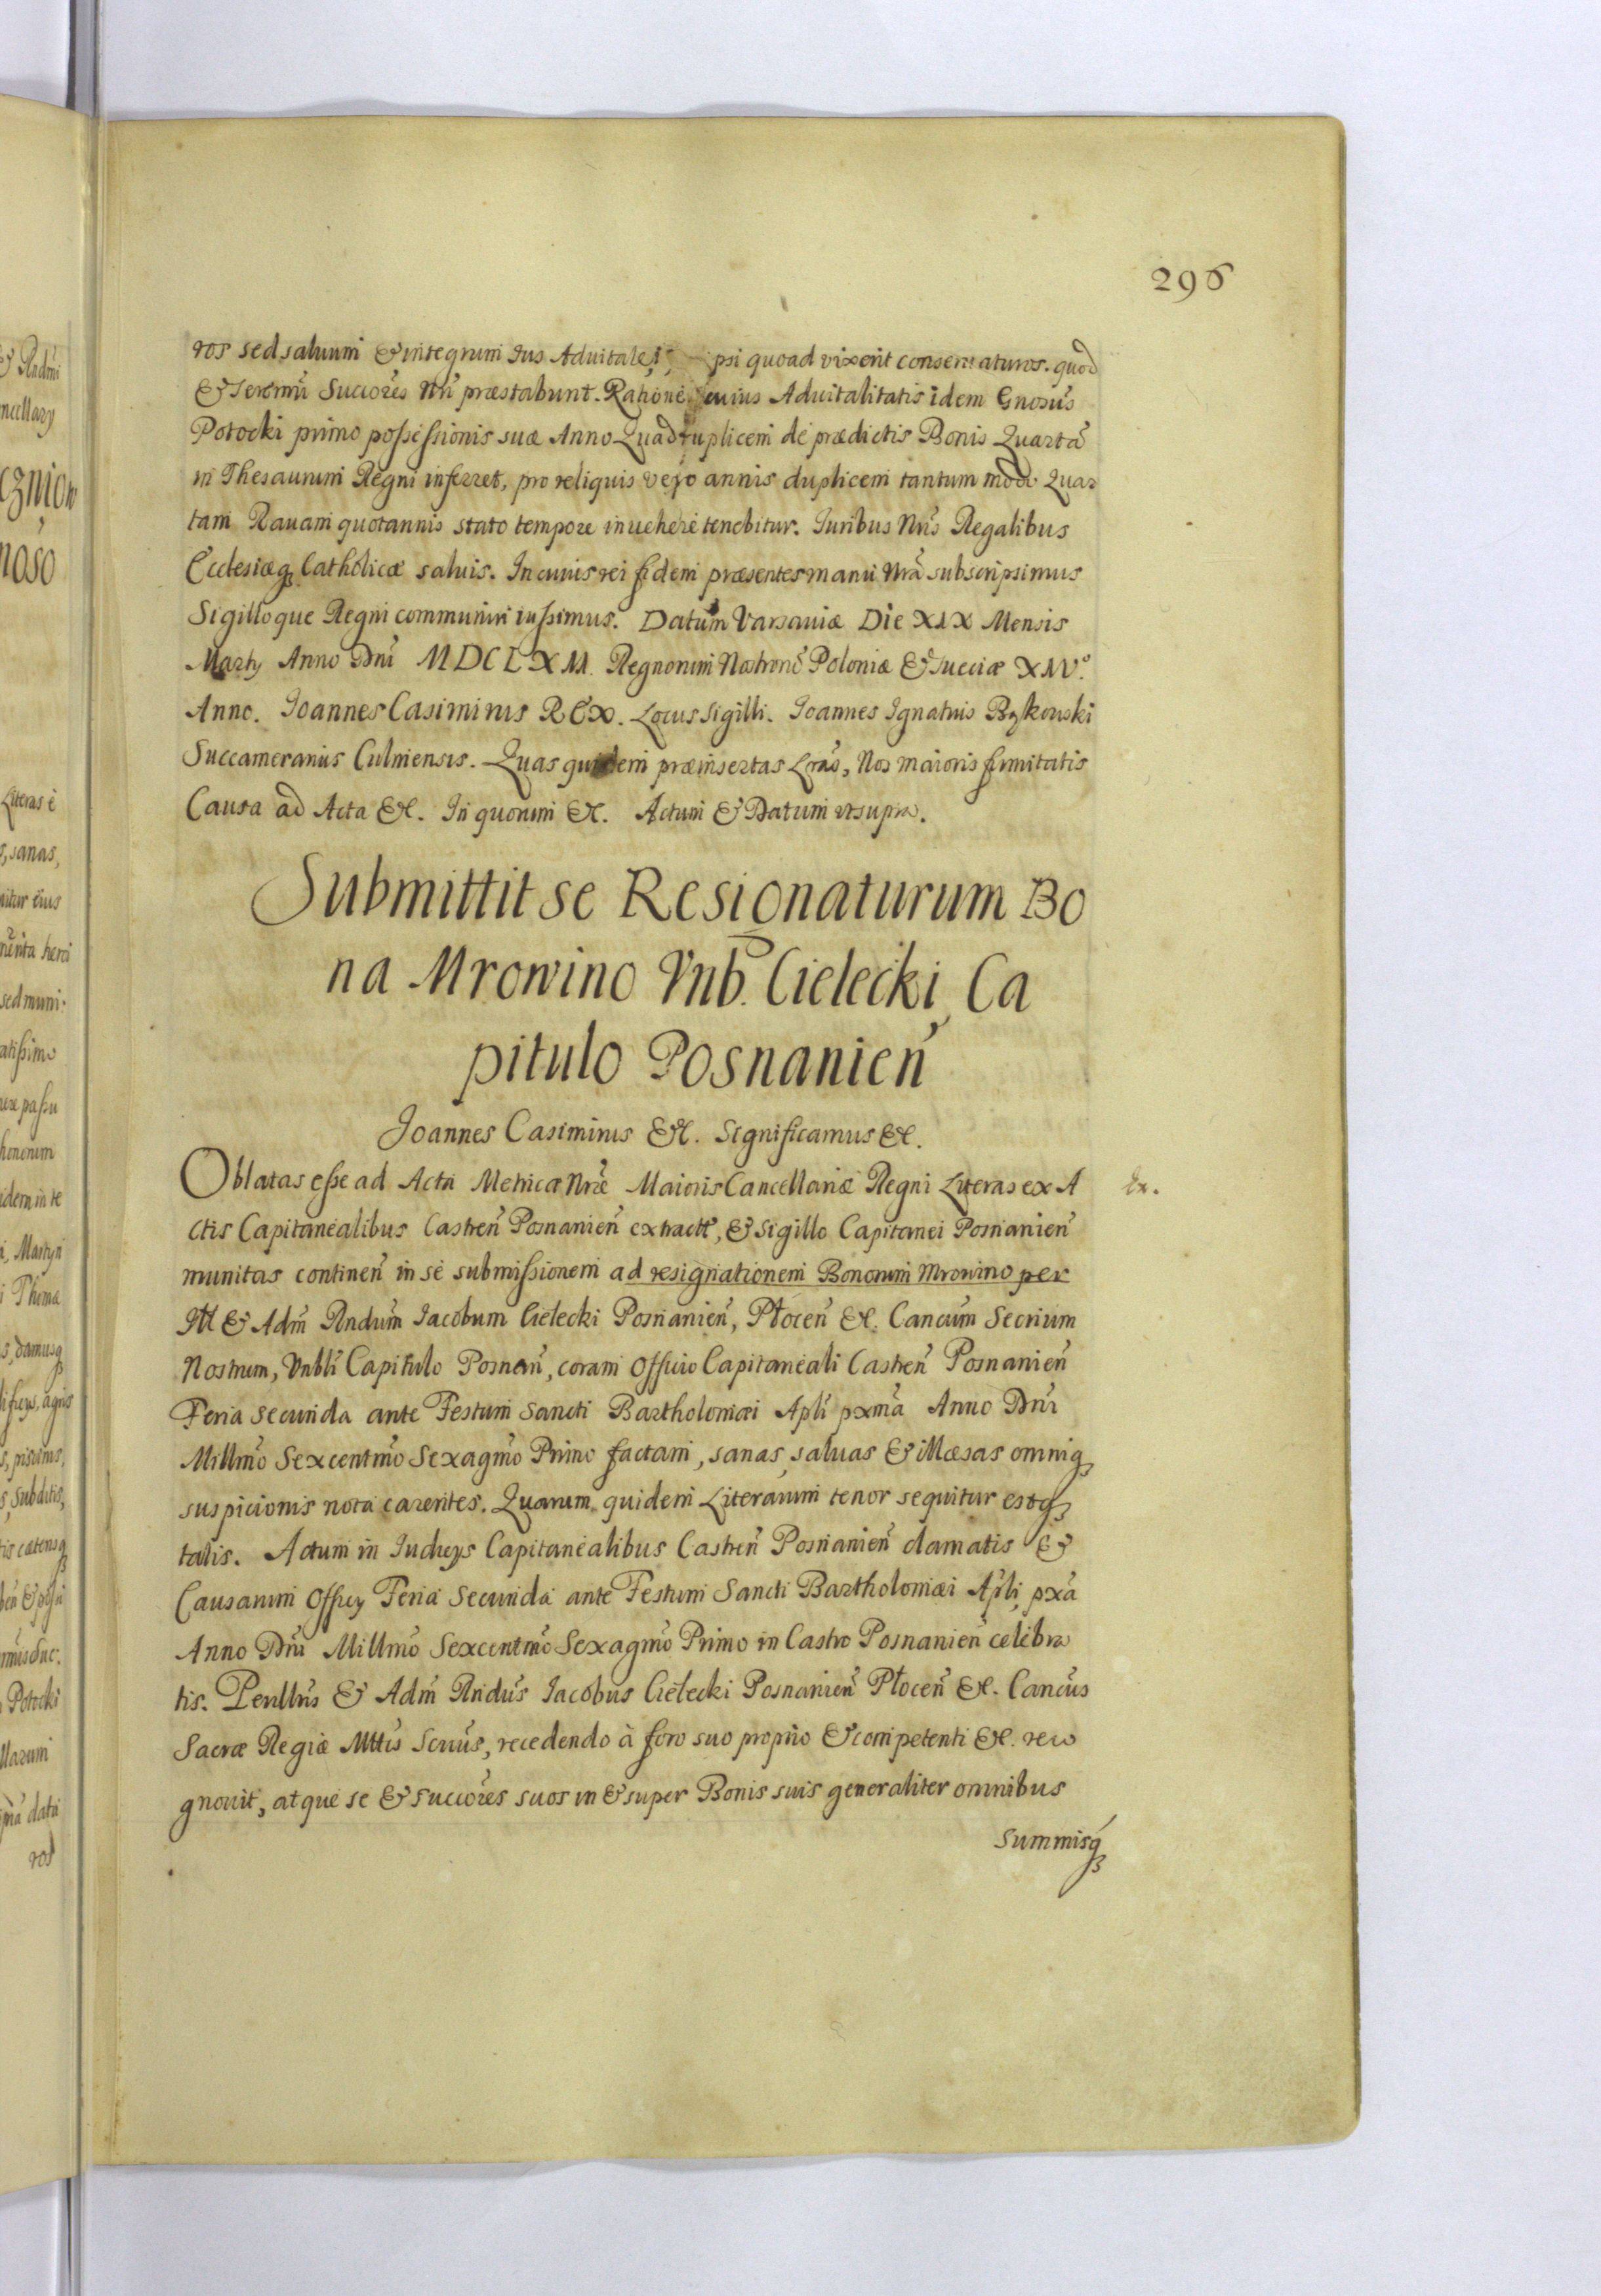 296
ros sed saluum & integrum Ius Aduitale, psi quoad vixerit conseruaturos. quod
& Serenmi Succores Nri præstabunt. Ratione cuius Aduitalitatis idem Gnosus
Potocki primo possessionis suæ Anno Quadruplicem de prædictis Bonis Quartã
in Thesaurum Regni inferret, pro reliquis vero annis duplicem tantum modo Quar
tam Rauam quotannis stato tempore inuehere tenebitur. Iuribus Nris Regalibus
Ecclesiæq Catholicæ saluis. In cuius rei fidem præsentes manu Nrã subscripsimus
Sigilloque Regni communiri iussimus. Datum Varsauiæ Die XIX Mensis
Martij Anno Dni MDCLXII. Regnorum Nostrorũ Poloniæ & Sueciæ XIV.º
Anno. Ioannes Casimirus REX. Locus Sigilli. Ioannes Ignatius Bąkowski
Succamerarius Culmensis. Quas quidem præinsertas Lras, Nos maioris firmitatis
Causa ad Acta &c. In quorum &c. Actum & Datum vt supra.
Submittit se Resignaturum Bo
na Mrowino Vnb. Cielecki, Ca
pitulo Posnanień
Ioannes Casimirus &c. Significamus &c.
Oblatas esse ad Acta Metricæ Nræ Maioris Cancellariæ Regni Literas ex A
ctis Capitanealibus Castreñ Posnanieñ extract, & Sigillo Capitanei Posnanieñ
munitas contineñ in se submissionem ad resignationem Bonorum Mrowino per
Ill & Adm Rndum Iacobum Cielecki Posnanieñ, Płoceñ &c. Cancum Secrium
Nostrum, Vnbli Capitulo Posnañ, coram Officio Capitaneali Castreñ Posnanieñ
Feria secunda ante Festum Sancti Bartholomæi Apli pxmã Anno Dni
Millmo Sexcentmo Sexagmo Primo factam, sanas, saluas & illæsas omniq
suspicionis nota carentes. Quarum quidem Literarum tenor sequitur estq
talis. Actum in Iudicijs Capitanealibus Castreñ Posnanieñ clamatis &
Causarum Officij Feria Secunda ante Festum Sancti Bartholomæi Apli, pxã
Anno Dni Millmo Sexcentmo Sexagmo Primo in Castro Posnanieñ celebra
tis. Perillris & Adm Rndus Iacobus Cielecki Posnanieñ Płoceñ &c. Cancus
Sacræ Regiæ Mttis Scrius, recedendo à foro suo proprio & competenti &c. reco
gnouit, atque se & succores suos in & super Bonis suis generaliter omnibus
summisq
Ex.